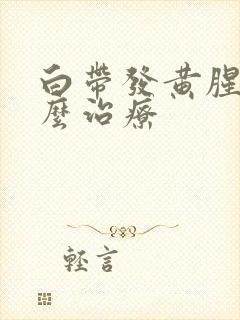 白帶發黃腥
麼治療
輕言